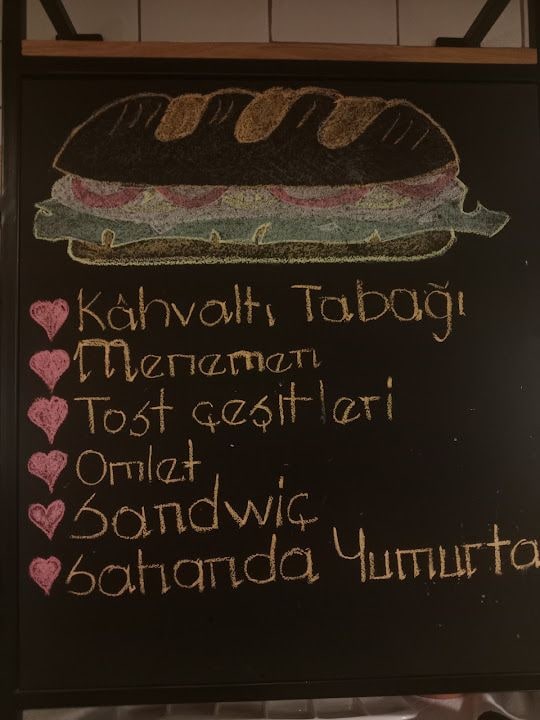 Kâhvaltı Tabağı
Menemen
Tost çeşitleri
Omlet
Sandwiç
Sahanda Yumurta